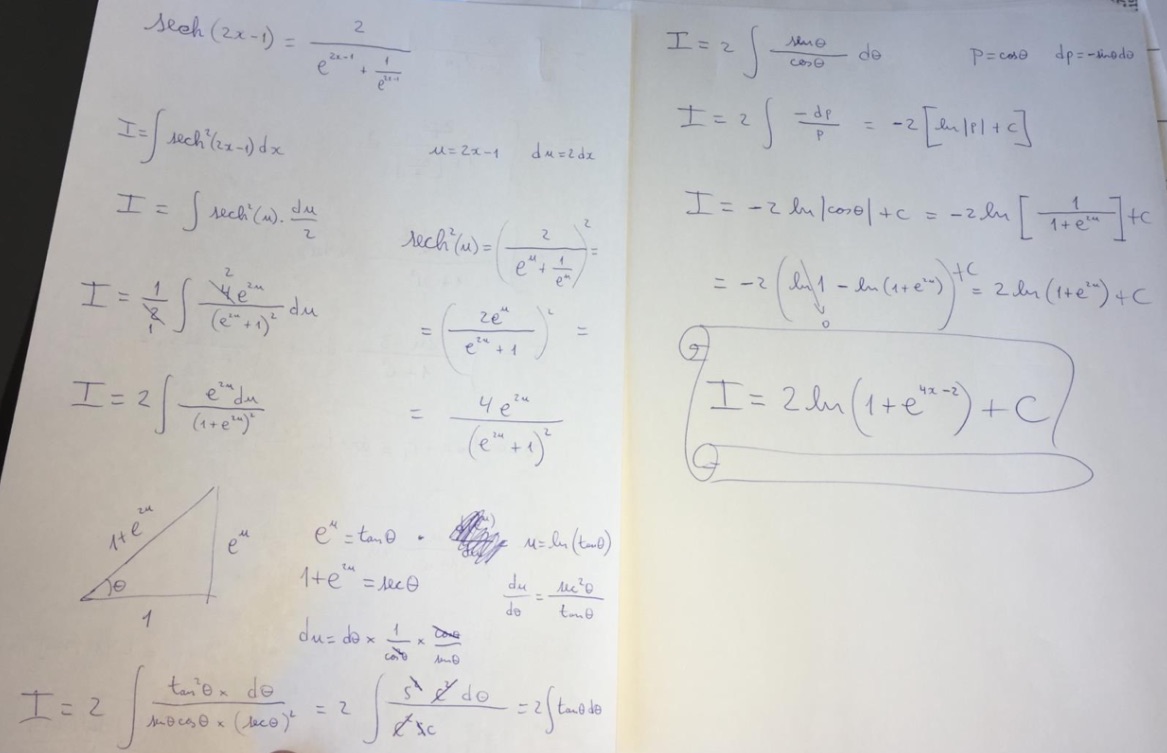 sech(2x-1) = 2 / (e^(2x-1) + 1/e^(2x-1))
I = ∫ sech²(2x-1) dx    u = 2x-1    du = 2dx
I = ∫ sech²(u) · du/2
sech²(u) = (2 / (e^u + 1/e^u))² =
I = 1/2 ∫ 4e^(2u) / (e^(2u) + 1)² du
2
1
= (2e^u / (e^(2u) + 1))² =
I = 2 ∫ e^(2u) du / (1 + e^(2u))²
= 4e^(2u) / (e^(2u) + 1)²
1 + e^(2u)
e^u
θ
1
e^u = tanθ · u = ln(tanθ)
1 + e^(2u) = secθ
du/dθ = sec²θ / tanθ
du = dθ × 1/cos²θ × cosθ/sinθ
I = 2 ∫ tan²θ × dθ / (sinθcosθ × (secθ)²) = 2 ∫ s² c² dθ / (c² s c) = 2∫tanθdθ
I = 2 ∫ sinθ/cosθ dθ    p = cosθ    dp = -sinθdθ
I = 2 ∫ -dp/p = -2 [ln|p| + c]
I = -2 ln|cosθ| + c = -2 ln [1 / (1 + e^(2u))] + c
= -2 (ln 1 - ln(1+e^(2u))) + c = 2 ln(1+e^(2u)) + C
0
I = 2 ln(1 + e^(4x-2)) + C